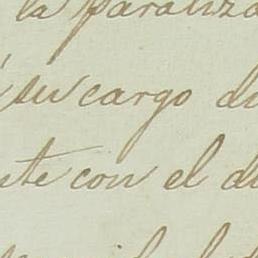 la paraliza
su cargo di
nte con el di